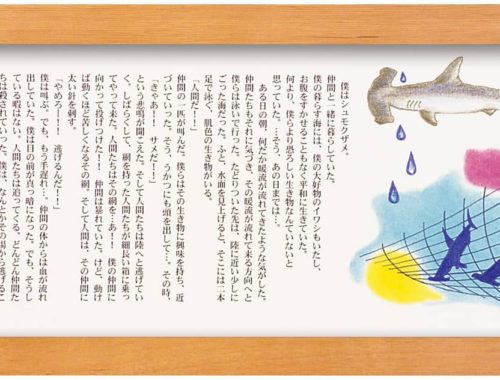 僕はシュモクザメ。
仲間と一緒に暮らしていた。
僕の暮らす海には、僕の大好物のイワシもいたし、
お腹をすかせることもなく平和に生きていた。
何より、僕らより恐ろしい生き物なんていないと
思っていた。…そう、あの日までは…。
ある日の朝、何だか暖流が流れてきたような気がした。
仲間たちもそれに気づき、その暖流が流れて来る方向へと
僕らは泳いで行った。たどりついた先は、陸に近い少しに
ごった海だった。ふと、水面を見上げると、そこには二本
足で泳ぐ、肌色の生き物がいる。
「人間だ!!」
仲間の一匹が叫んだ。僕らはその生き物に興味を持ち、近
づいていった。そう、うかつにも頭を出して…。その時、
「きゃあー!サメだー!」
という悲鳴が聞こえた。そして人間たちは陸へと逃げてい
く。しばらくして、銅を持った人間たちが細長い箱に乗っ
てやって来た。人間たちはその銅を…あー!僕の仲間に
向かって投げつけた!!仲間は暴れていた。けど、動け
ば動くほど苦しくなるその銅。そして人間は、その仲間に
太い針を刺す。
「やめろーー!逃げるんだ!!」
僕は叫ぶ。でも、もう手遅れ…。仲間の体からは血が流れ
出していた。僕は目の前が真っ暗になった。でも、そうし
ている暇はない。人間たちは追ってくる。どんどん仲間た
ちは殺されていった。僕は、なんとかその場から逃げるこ